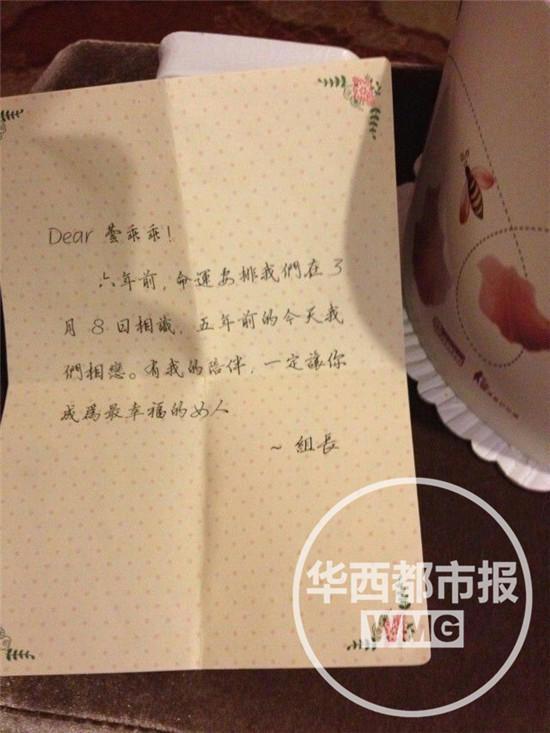 Dear 萱乖乖!
六年前,命運安排我們在3
月8日相識,五年前的今天我
們相戀。有我的陪伴,一定讓你
成爲最幸福的女人
~ 組長
华西都市报
WMG